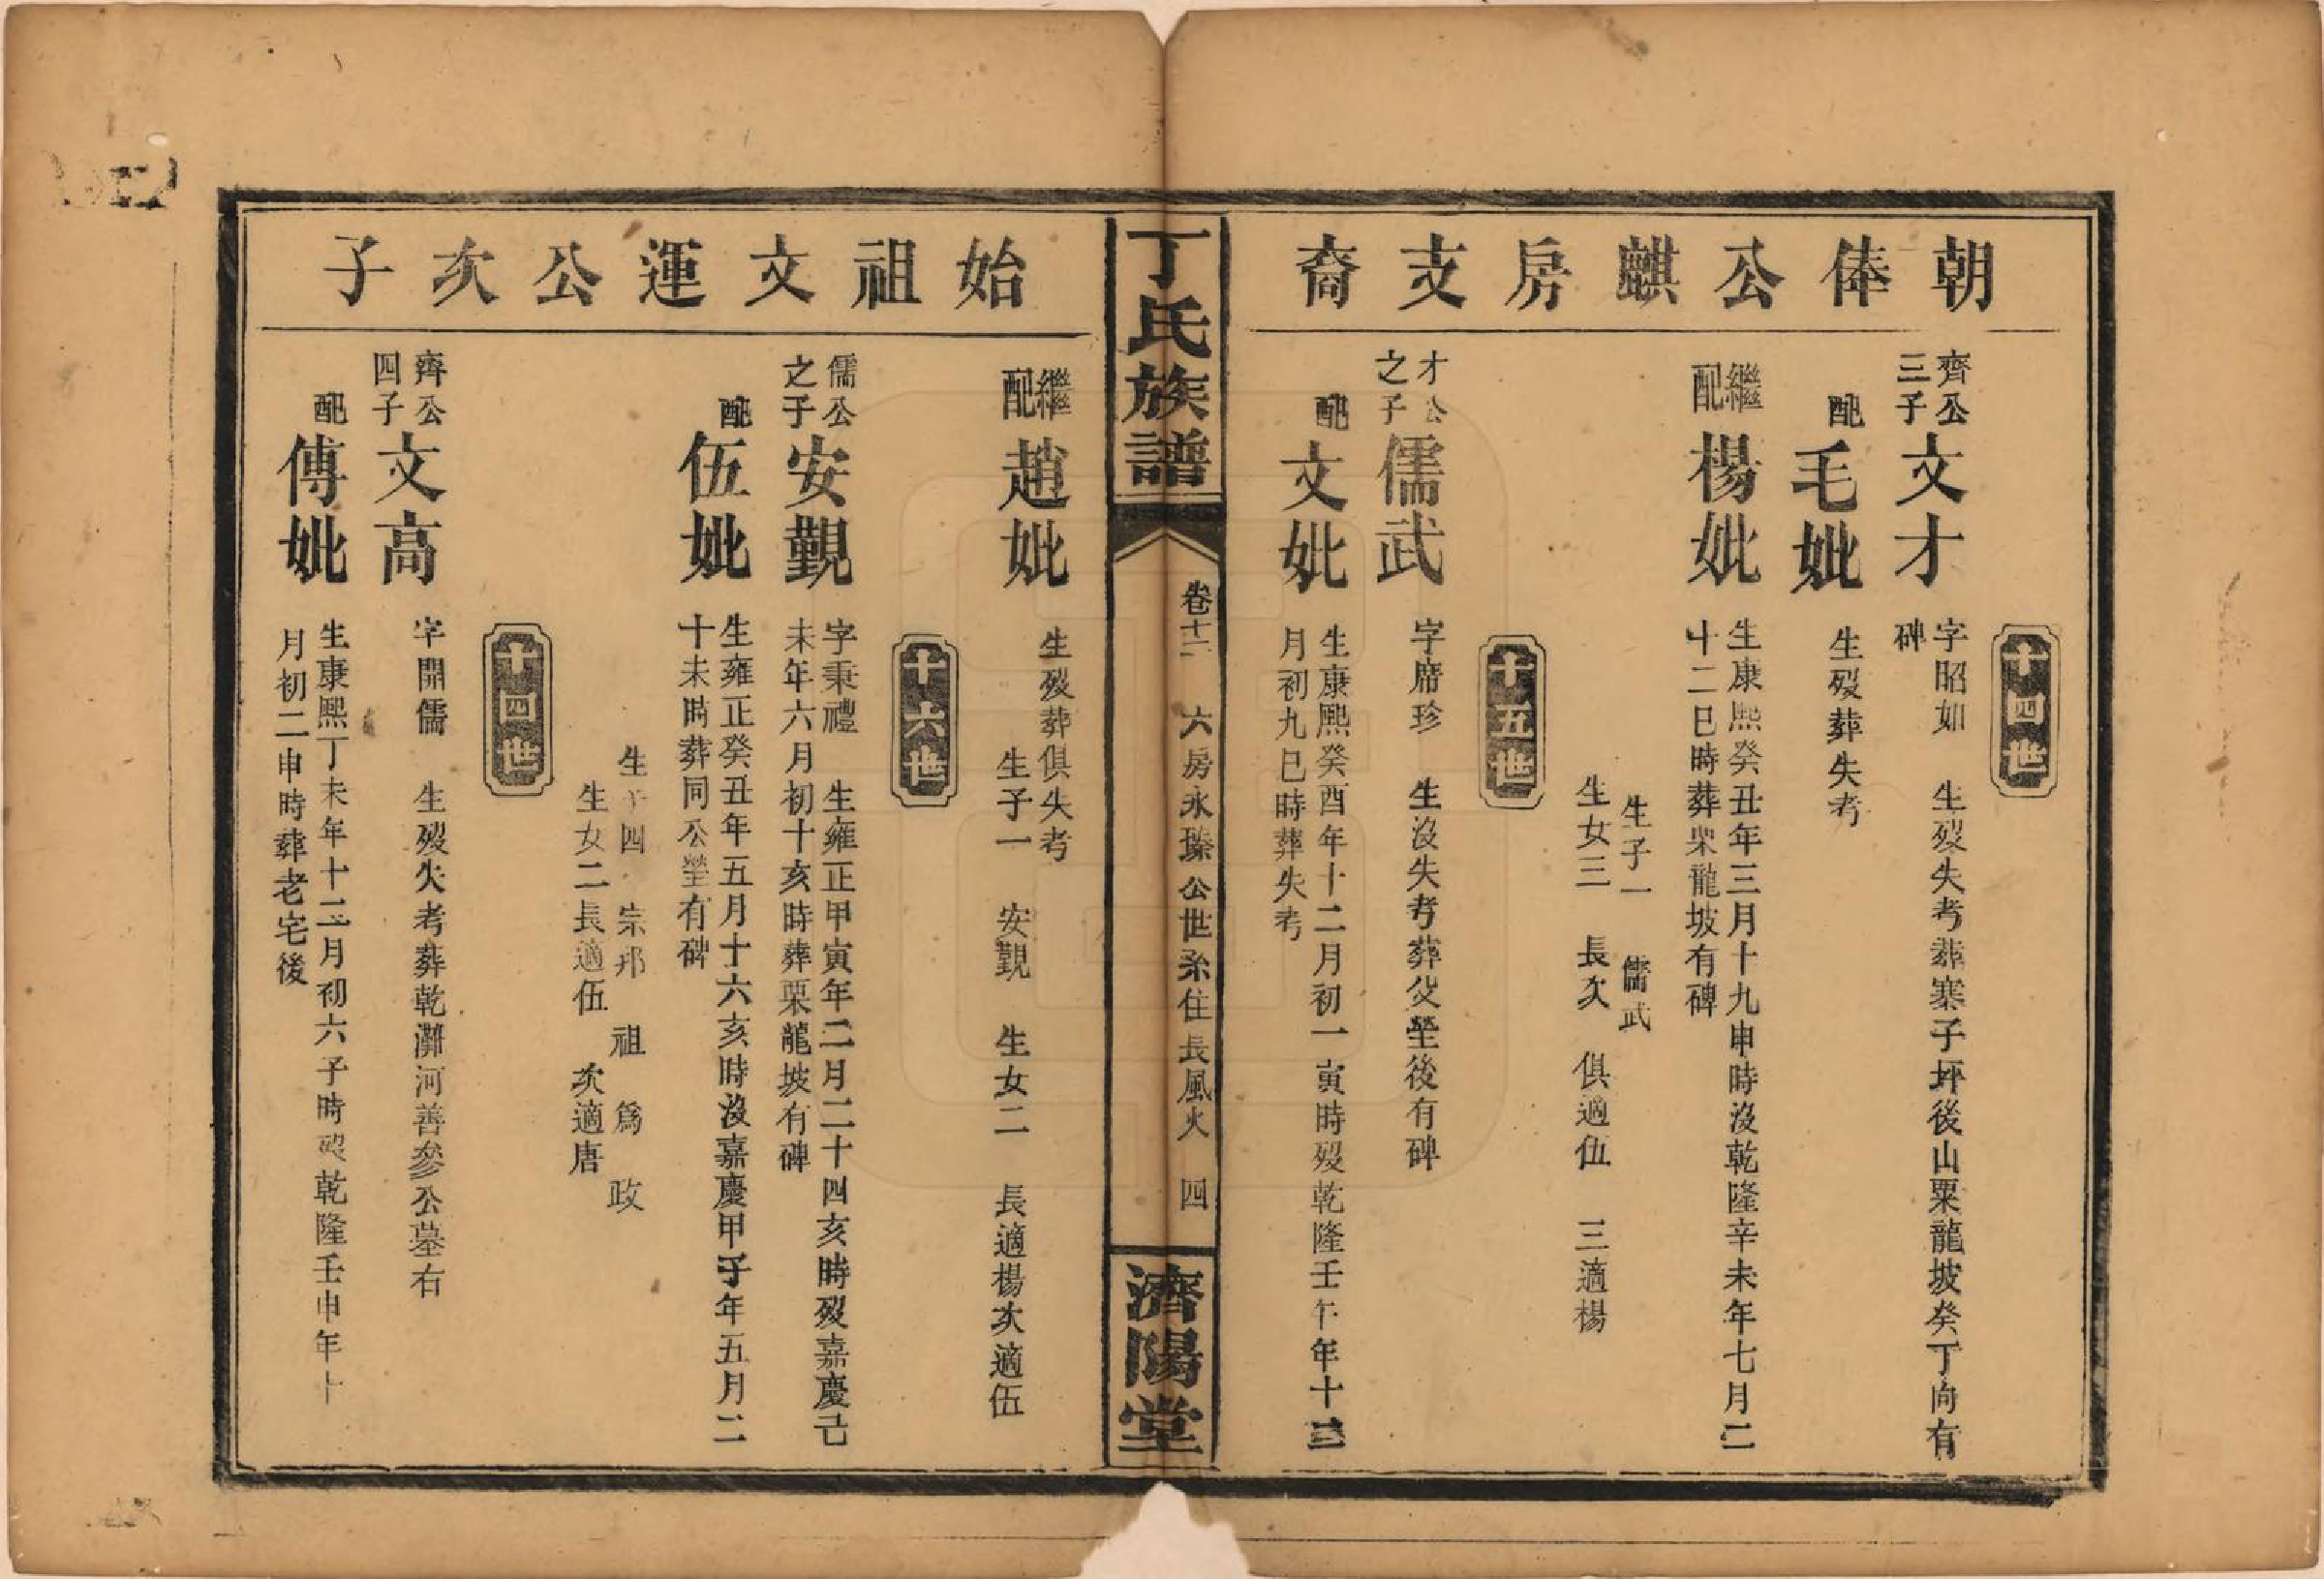 朝俸公麒房支裔
十四世
齊公三子
文才
字昭如　生歿失考葬寨子坪後山粟龍坡癸丁向有
碑
配
毛妣
生歿葬失考
繼配
楊妣
生康熙癸丑年三月十九申時沒乾隆辛未年七月二
十二巳時葬粟龍坡有碑
生子一　儒武
生女三　長次　俱適伍　三適楊
十五世
才公之子
儒武
字席珍　生沒失考葬父塋後有碑
配
文妣
生康熙癸酉年十二月初一寅時歿乾隆壬午年十三
月初九巳時葬失考
丁氏族譜
卷十二　六房永瑧公世系住長風火　四
濟陽堂
始祖文運公次子
繼配
趙妣
生歿葬俱失考
生子一　安觀　生女二　長適楊次適伍
十六世
儒公之子
安觀
字秉禮　生雍正甲寅年二月二十四亥時歿嘉慶己
未年六月初十亥時葬栗龍坡有碑
配
伍妣
生雍正癸丑年五月十六亥時沒嘉慶甲子年五月二
十未時葬同公塋有碑
生子四　宗邦　祖　爲　政
生女二長適伍　次適唐
十四世
齊公四子
文高
字開儒　生歿失考葬乾灘河善參公墓右
配
傅妣
生康熙丁未年十二月初六子時歿乾隆壬申年十
月初二申時葬老宅後